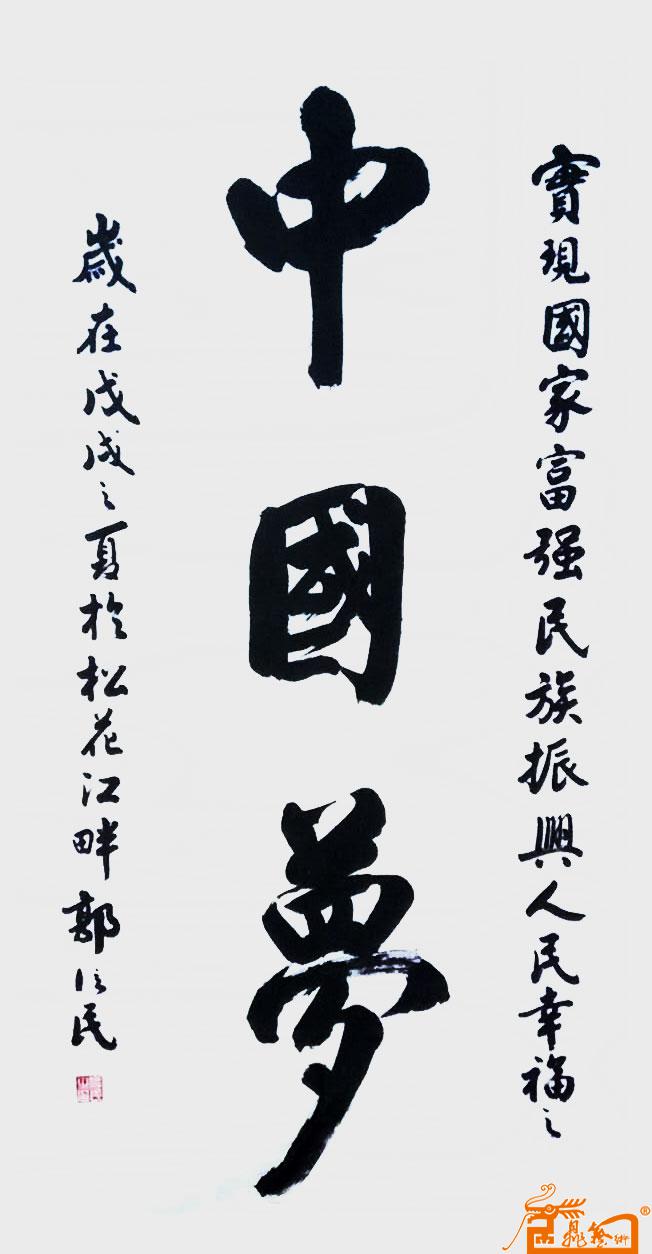 實現國家富强民族振興人民幸福之
中國夢
歲在戊戌之夏於松花江畔郭信民